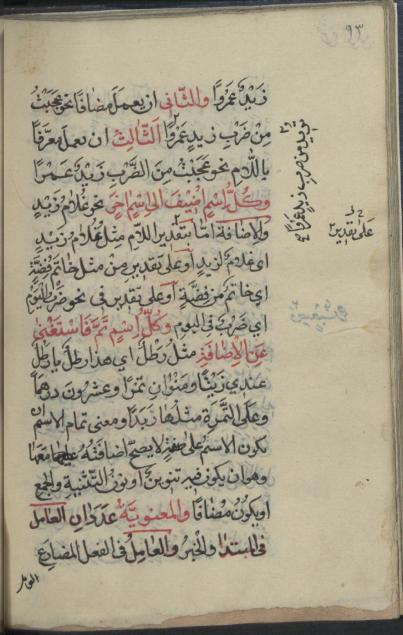 ٩٣
زَيْدٌ عَمْرًوا والثّانى ان يعمل مضافًا نحو عجبت
مِنْ ضَرْبِ زيدٍ عَمْرًوا الثّالث ان تعمل معرّفًا
باللّام نحو عجبت من الضّرب زيدٌ عمرًا
وكلُّ اسمٍ اُضيف الى اسمٍ اخر نحو غلام زيدٍ
والاضافة امّا بتقدير اللّام مثل غلام زيدٍ
اى غلامٌ لزيدٍ او على تقدير من مثل خاتم فضّة
اى خاتمٌ من فضّةٍ او على تقدير فى نحو ضرب اليوم
اى ضربٌ فى اليوم وكلُّ اسمٍ تمَّ فاستغنى
عن الاضافة مثل رطل اى هذا رطل
عندى زيتًا ومنوان تمرًا وعشرون درهمًا
وعلى التّمرة مثلها زبدًا ومعنى تمام الاسم ان
يكون الاسم على لا يصحّ اضافته معها
وهو ان يكون فيه تنوينٌ او نون التّثنية والجمع
او يكون مضافًا والمعنويّة عددان العامل
فى المبتدا والخبر والعامل فى الفعل المضارع
على تقدير